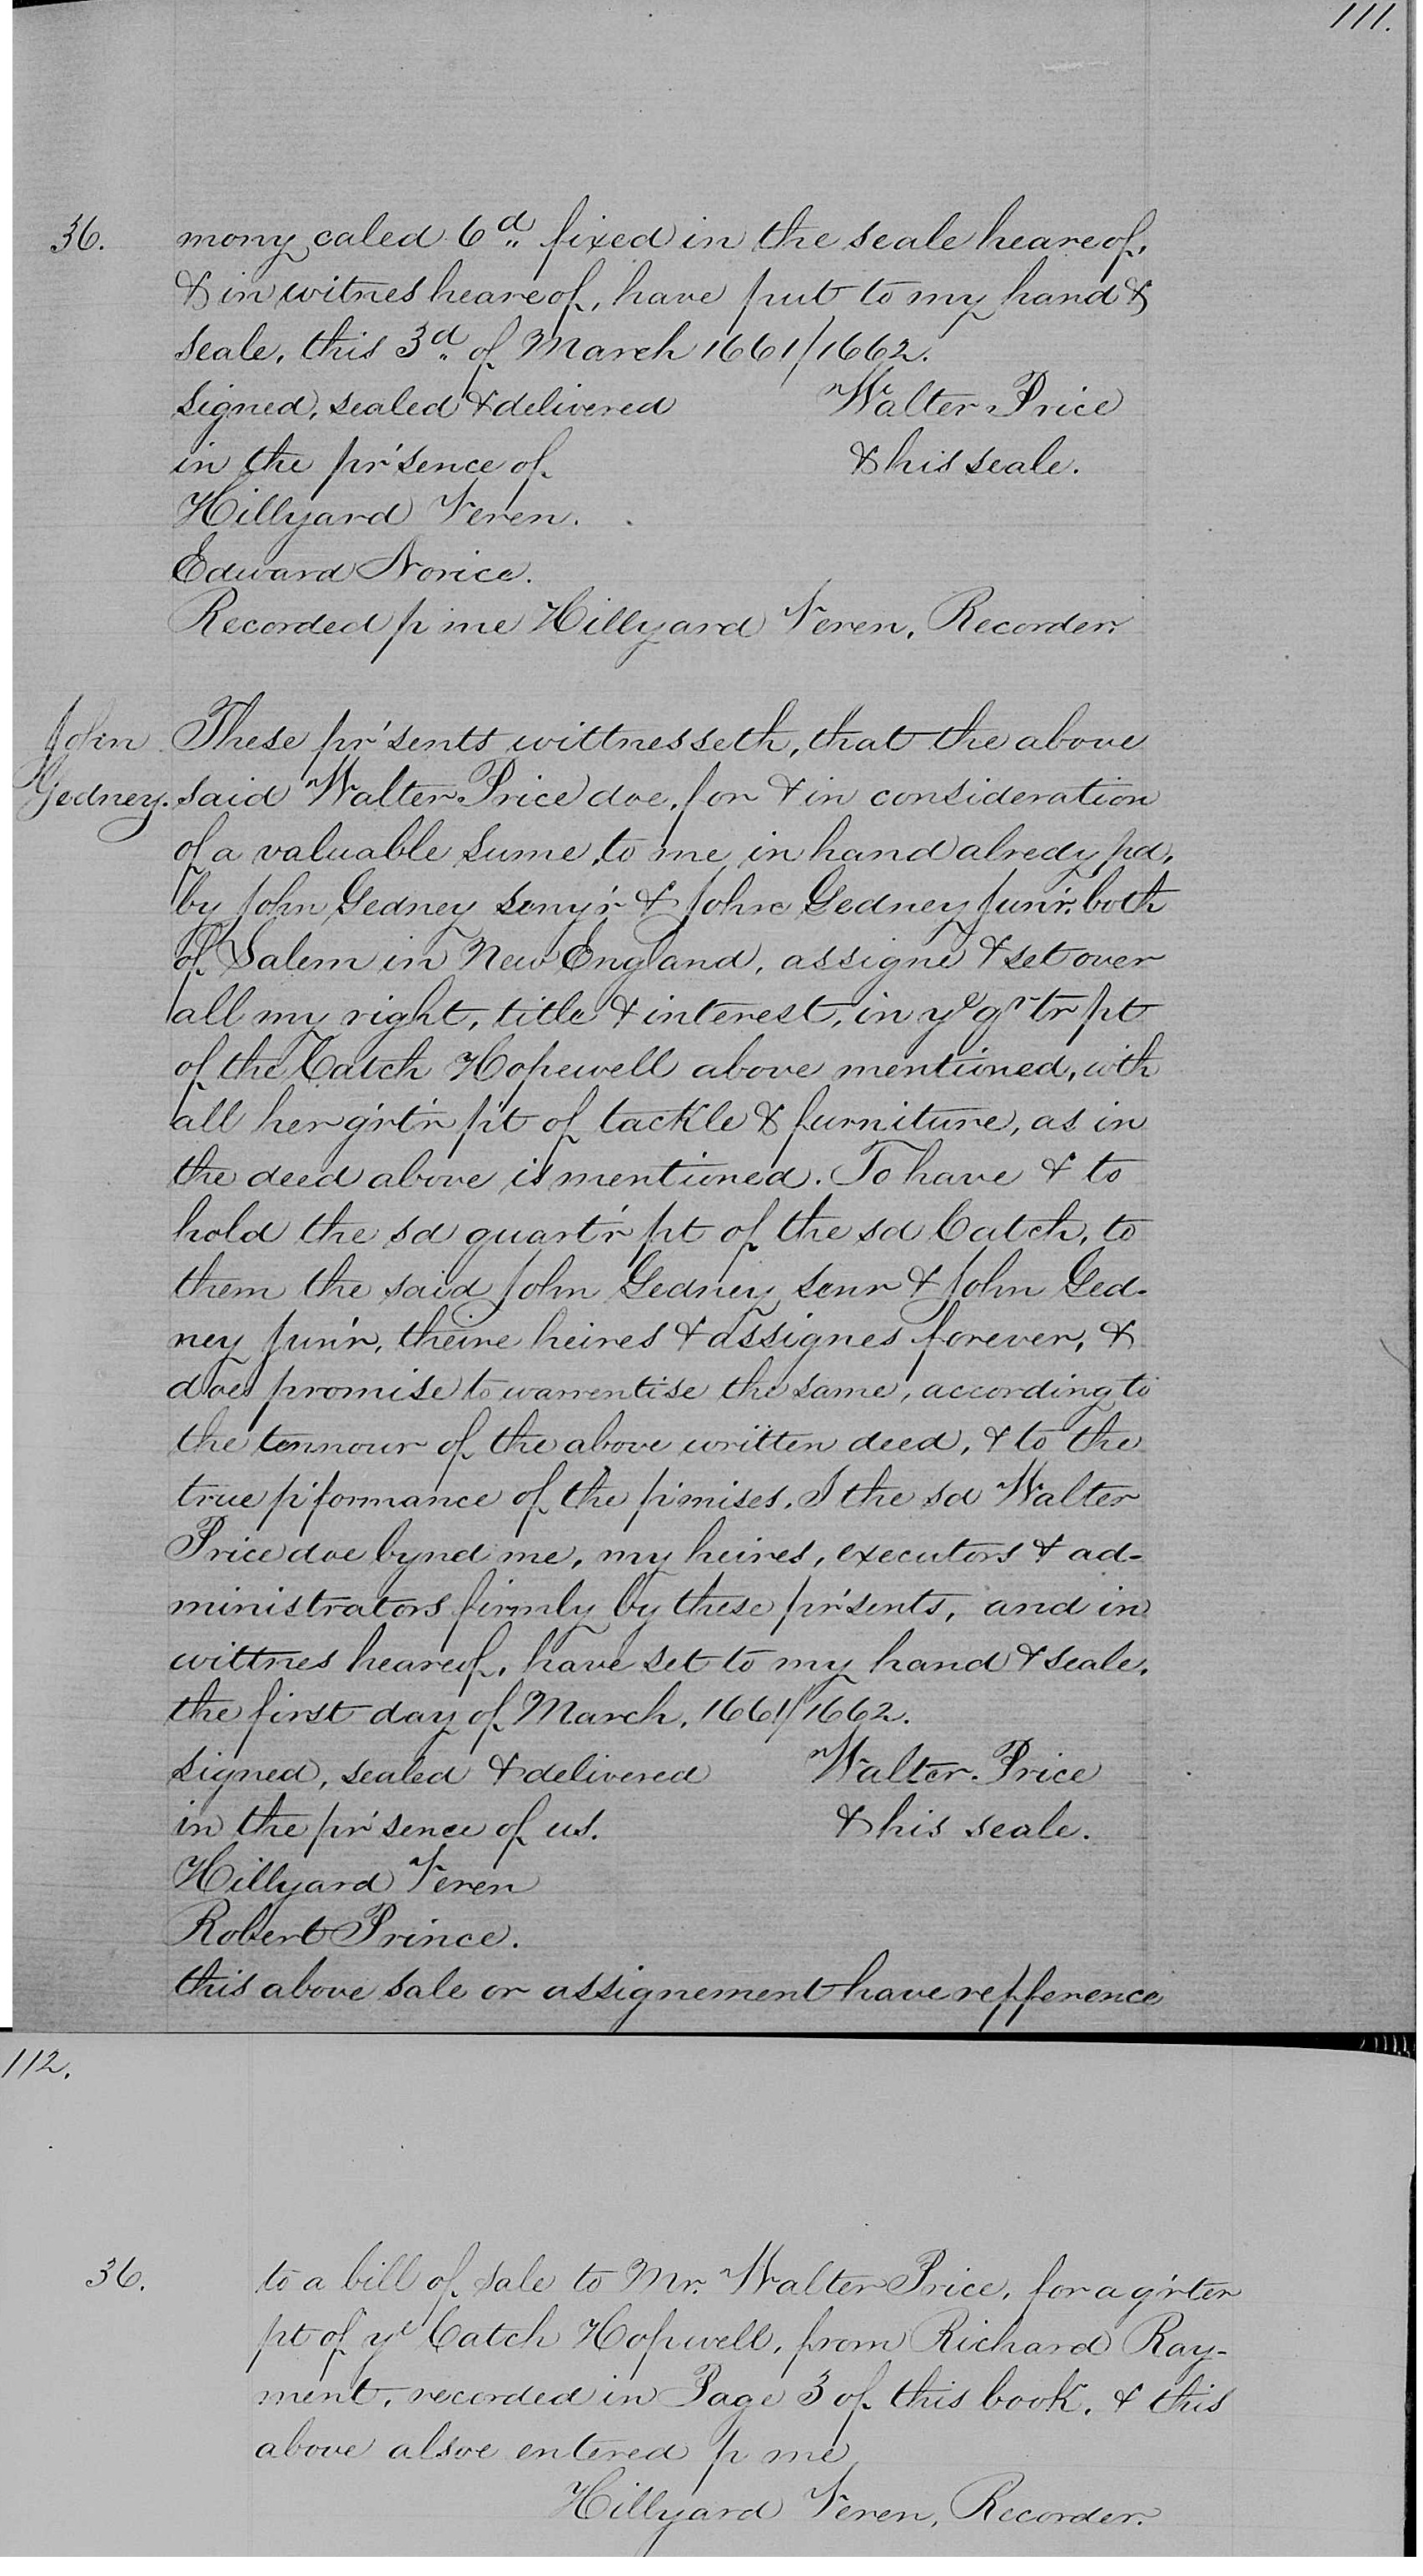 111.
36. mony caled 6d fixed in the seale heareof,
& in witnes heareof, have put to my hand &
seale, this 3d of March 1661/1662.
signed, sealed & delivered Walter Price
in the pr'sence of & his seale.
Hillyard Veren.
Edward Norice.
Recorded p me Hillyard Veren, Recorder.
John These pr'sents wittnesseth, that the above
Gedney. said Walter Price doe, for & in consideration
of a valuable sume, to me in hand alredy pd,
by John Gedney seny'r & John Gedney Jun'r. both
of Salem in New England, assigne & set over
all my right, title & interest, in ye q'rtr pt
of the Catch Hopewell above mentioned, with
all her q'rt'r p't of tackle & furniture, as in
the deed above is mentioned. To have & to
hold the sd quart'r pt of the sd Catch, to
them the said John Gedney senr & John Ged-
ney Jun'r, theire heires & assignes forever, &
does promise to warrentise the same, according to
the tennour of the above written deed, & to the
true p'formance of the p'mises, I the sd Walter
Price doe bynd me, my heires, executors & ad-
ministrators firmly by these pr'sents, and in
wittnes heareof, have set to my hand & seale,
the first day of March, 1661/1662.
signed, sealed & delivered Walter Price
in the pr'sence of us. & his seale.
Hillyard Veren
Robert Prince.
this above sale or assignement have refference
112.
36. to a bill of sale to Mr. Walter Price, for a q'rter
pt of ye Catch Hopwell, from Richard Ray-
ment, recorded in Page 3 of this book, & this
above alsoe entered p me
Hillyard Veren, Recorder.